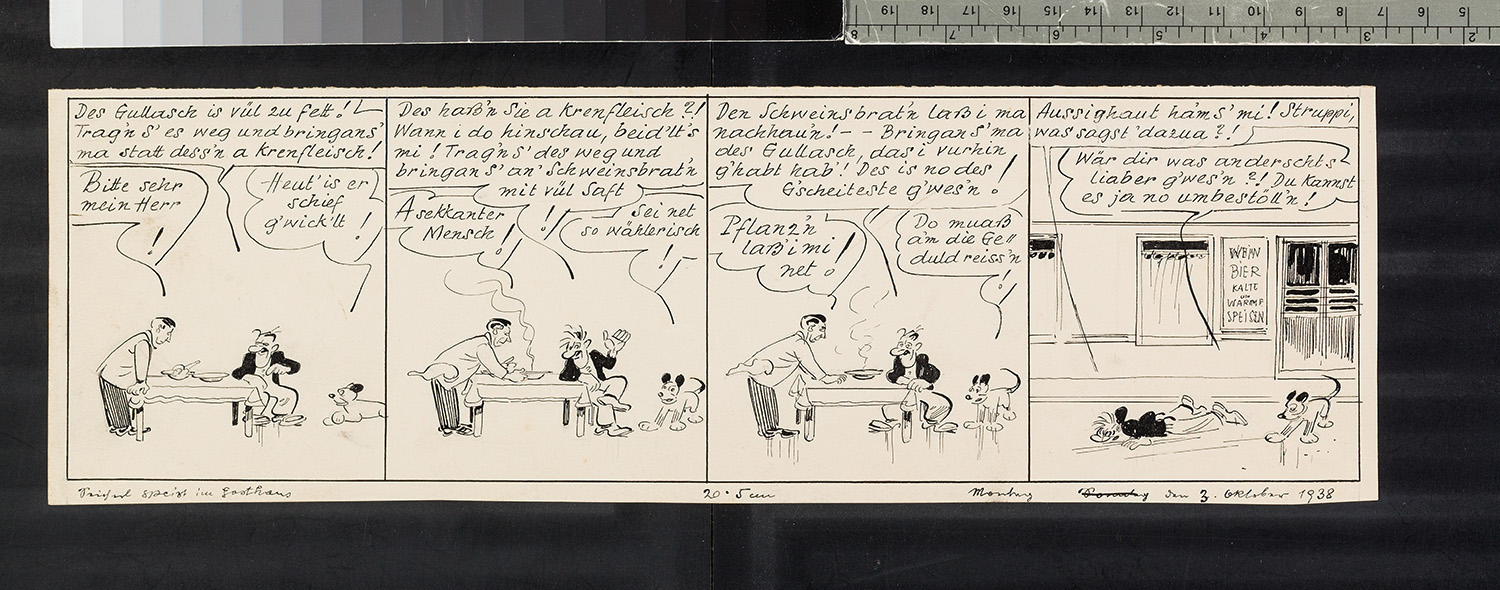 Des Gullasch is vül zu fett!
Trag'n S' es weg und bringan S'
ma statt dess'n a Krenfleisch!
Bitte sehr
mein Herr
!
Heut' is er
schief
g'wick'lt
!
Des haß'n Sie a Krenfleisch?!
Wann i do hinschau, beid'lt's
mi! Trag'n S' des weg und
bringan S' an' Schweinsbrat'n
mit vül Saft
!
A sekkanter
Mensch!
Sei net
so wählerisch
!
Den Schweinsbrat'n laß i ma
nachhau'n! - - Bringan S' ma
des Gullasch, das i vurhin
g'habt hab'! Des is no des
G'scheiteste g'wes'n!
Pflanz'n
laß i mi
net!
Do muaß
a'n die Ge"
duld reiss'n
!
Aussighaut ham S' mi! Struppi,
was sagst' dazua?!
Wär dir was anderschts
liaber g'wes'n?! Du kannst
es ja no umbestöll'n!
WEIN
BIER
KALTE
UND
WARME
SPEISEN
speist im Gasthaus
20·5 cm
Montag
den 3. Oktober 1938
19 18 17 16 15 14 13 12 11 10 9 8 7 6 5
8 7 6 5 4 3 2